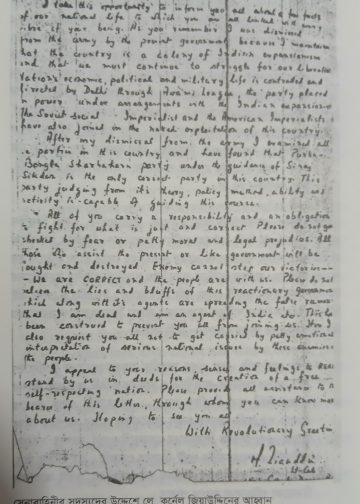 I take this opportunity to inform you all about a few facts
of our national life to which you are all linked with every
fibre of your being. As you remember I was dismissed
from the army by the present government because I maintained
that the country is a colony of Indian expansionism
and that we must continue to struggle for our liberation
Nation's economic, political and military life is controlled and
directed by Delhi through Awami League, the party placed
in power. Under arrangements with the Indian expansionists
the Soviet Social Imperialist and the American Imperialists
have also joined in the naked exploitation of this country.
After my dismissal from the army I examined all
parties in this country and have found that Purba
Bangla Sharbahara party under the guidance of Siraj
Sikder is the only correct party in this country. This
party judging from its theory, policy method, ability and
activity is capable of guiding this course.
All of you carry a responsibility and an obligation
to fight for what is just and correct Please do not get
checked by fear or petty moral and legal prejudice. All
those who assist the present or like government will be
fought and destroyed. Enemy cannot stop our victories
We are CORRECT and the people are with us. Please do not
believe the lies and bluffs of this reactionary government
which along with its agents are spreading the false rumour
that I am dead and am an agent of India etc. This has
been construed to prevent you all from joining us. Here I
also request you all not to get carried by petty emotional
interpretation of serious national issues by these enemies of
the people.
I appeal to your reasons, senses and feelings to
stand by us in deeds for the creation of a free
self-respecting nation. Please provide all assistance to the
bearer of this letter, through whom you can know more
about us. Hoping to see you all
With Revolutionary Greetings
M Ziauddin
Lt-Col
সেনাবাহিনীর সদস্যদের উদ্দেশে লে. কর্নেল জিয়াউদ্দিনের আহ্বান